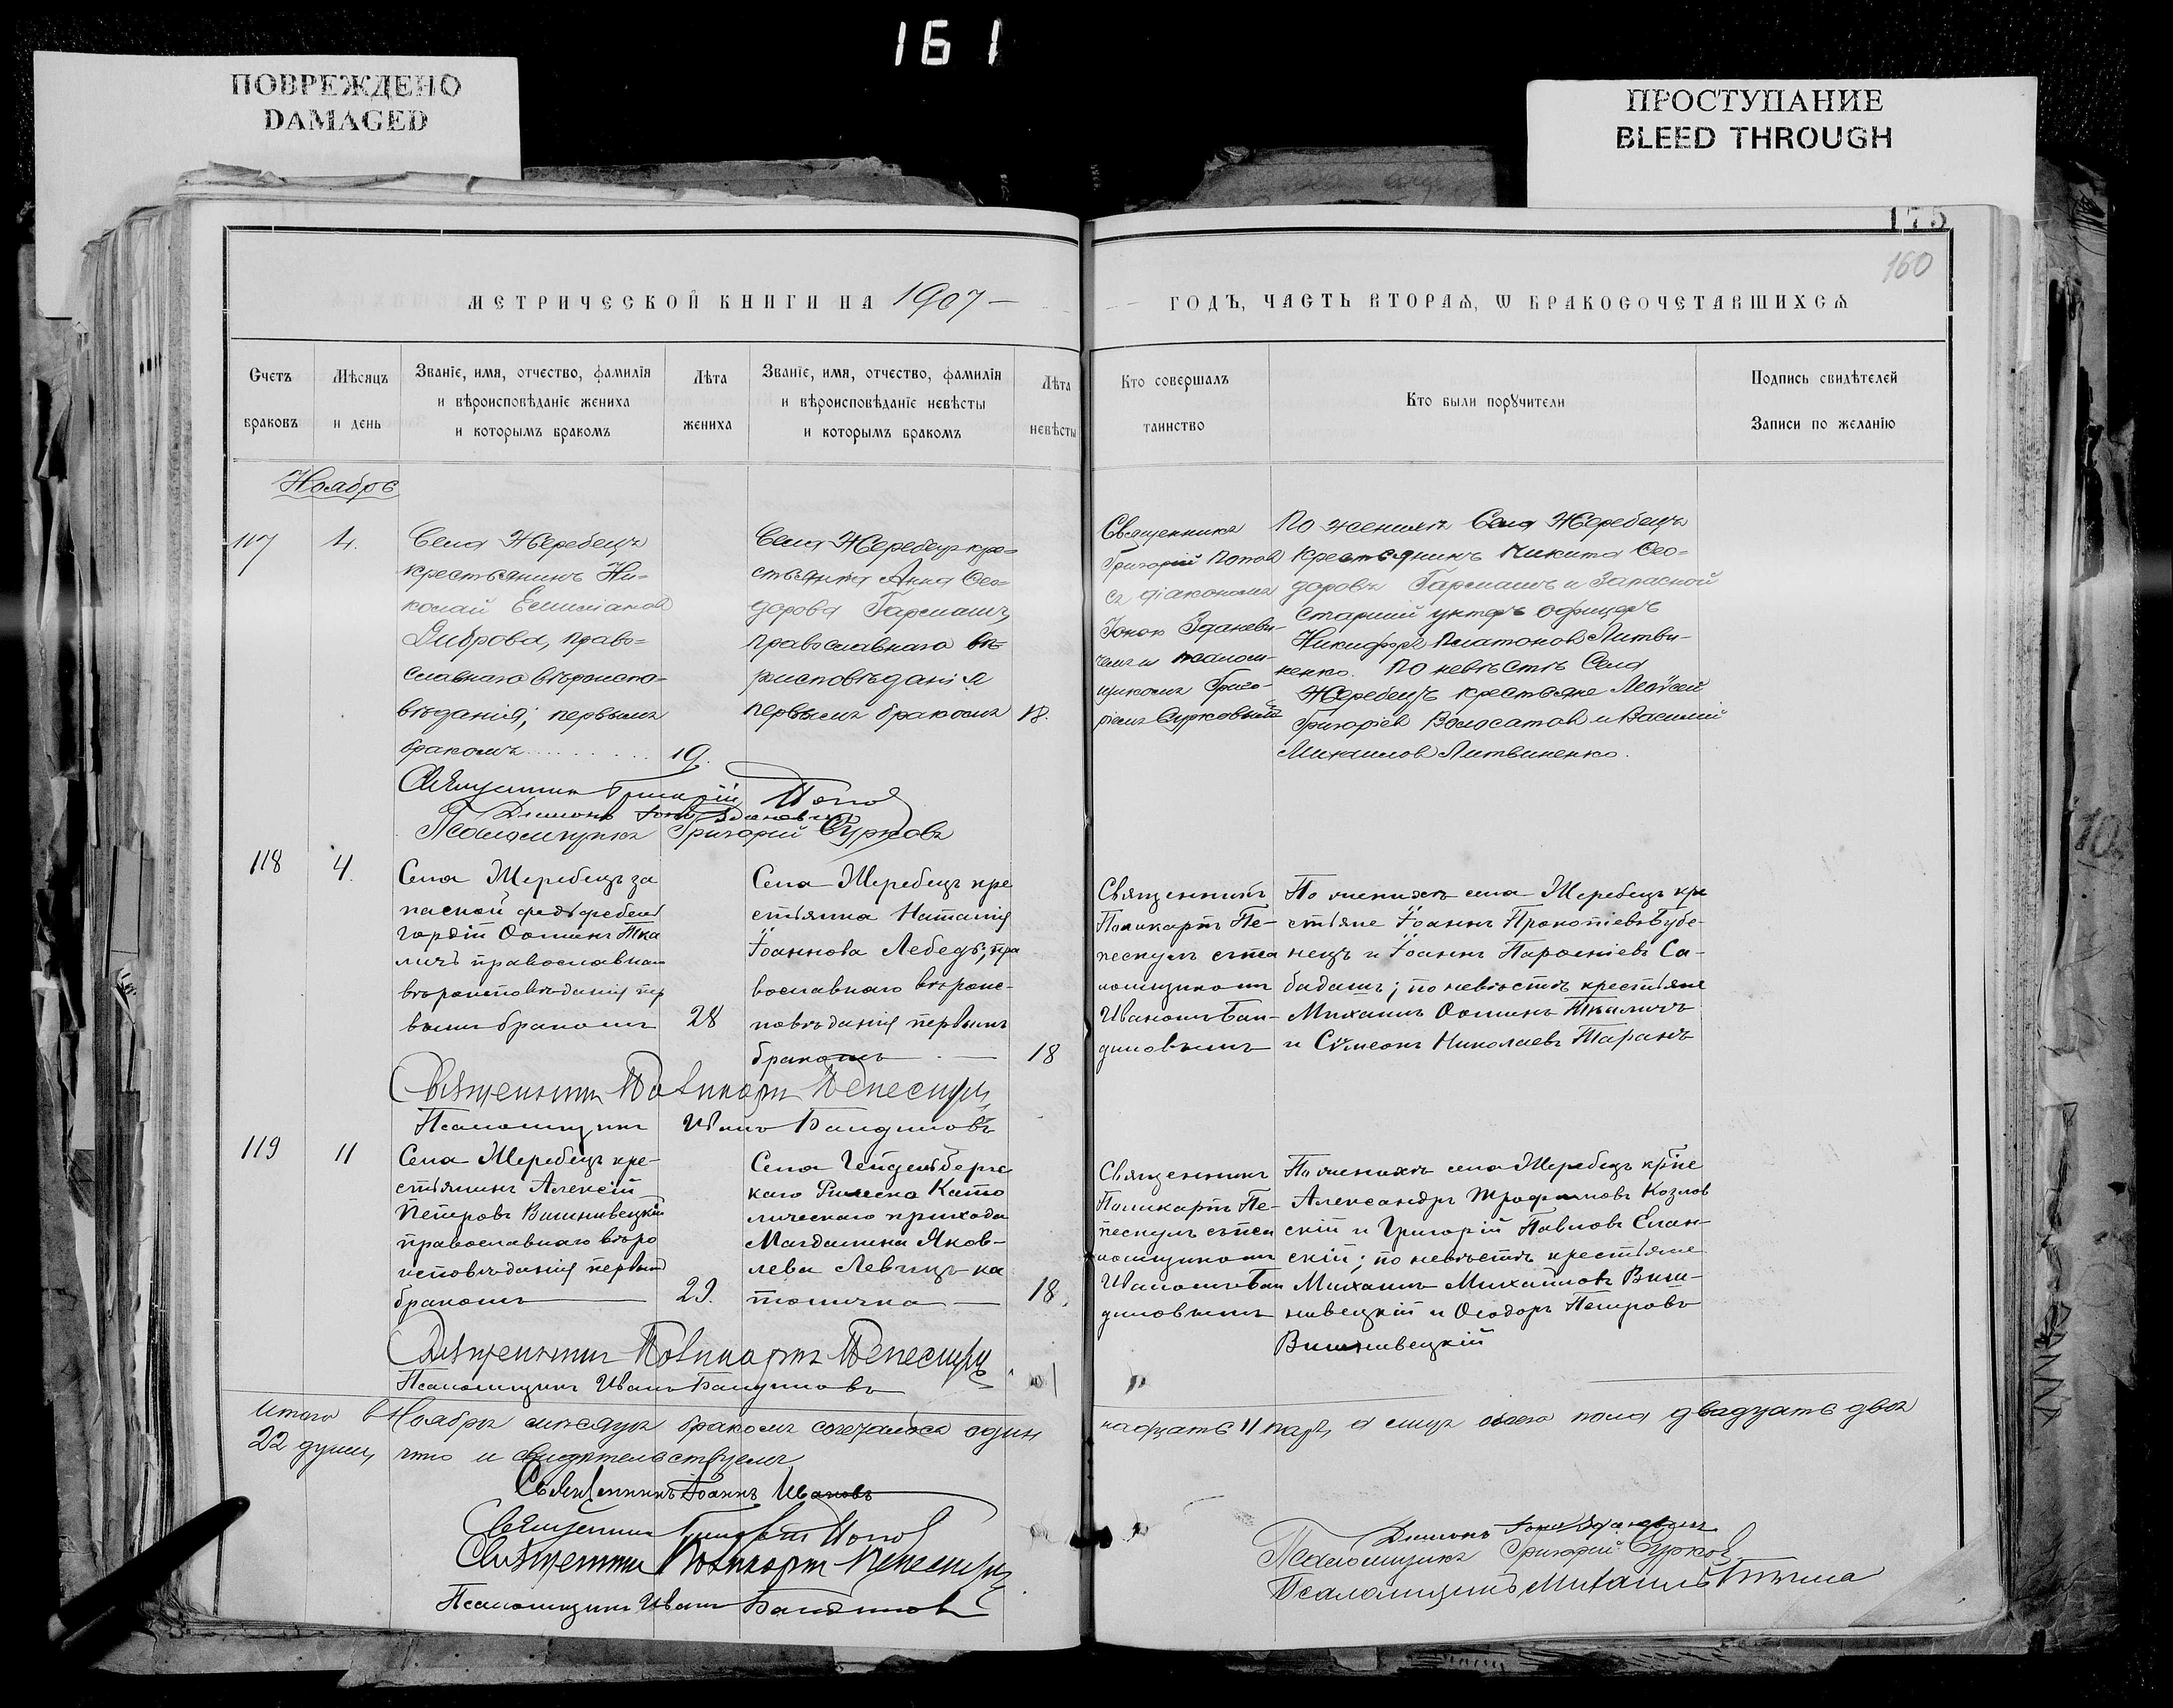 161
ПОВРЕЖДЕНО
DAMAGED
ПРОСТУПАНИЕ
BLEED THROUGH
175
160
МЕТРИЧЕСКОЙ КНИГИ НА 1907
ГОДЪ, ЧАСТЬ ВТОРАЯ, Ѡ БРАКОСОЧЕТАВШИХСЯ
Счетъ
браковъ
Мѣсяцъ
и день
Званіе, имя, отчество, фамилія
и вѣроисповѣданіе жениха
и которымъ бракомъ
Лѣта
жениха
Званіе, имя, отчество, фамилія
и вѣроисповѣданіе невѣсты
и которымъ бракомъ
Лѣта
невѣсты
Кто совершалъ
таинство
Кто были порꙋчители
Подпись свидѣтелей
Записи по желанію
Ноябрь
117
4.
Села Жеребецъ
крестьянинъ Ни-
колай Емиліановъ
Диброва, право-
славнаго вѣроиспо-
вѣданія; первымъ
бракомъ
19.
Села Жеребецъ кре-
стьянка Анна Ѳео-
дорова Гармашъ,
православнаго вѣ-
роисповѣданія
первымъ бракомъ
18.
Священникъ
Григорій Поповъ
съ діакономъ
Іоною Зданеви-
чемъ и псалом-
щикомъ Григо-
ріемъ Сурковымъ
По женихѣ Села Жеребецъ
крестьянинъ Никита Ѳео-
доровъ Гармашъ и Запасной
старшій унтеръ офицеръ
Никифоръ Платоновъ Литви-
ненко. По невѣстѣ Села
Жеребецъ крестьяне Моѵсей
Григоріевъ Волосатовъ и Василій
Михаиловъ Литвиненко.
Священникъ Григорій Поповъ
Діаконъ Іона Зданевичъ
Псаломщикъ Григорій Сурковъ
118
4.
Села Жеребецъ за
пасной фельдфебель
Гордій Ѳоминъ Тка
личъ православнаго
вѣроисповѣданія пер
вымъ бракомъ
28
Села Жеребецъ кре
стьянка Наталія
Іоаннова Лебедь, пра
вославнаго вѣроис-
повѣданія первымъ
бракомъ
18
Священникъ
Поликарпъ Пе-
пескулъ съ пса
ломщикомъ
Иваномъ Бан-
диловымъ
По женихѣ села Жеребецъ кре
стьяне Іоаннъ Прокопіевъ Бубе-
нецъ и Іоаннъ Парѳеніевъ Са-
бадашъ; по невѣстѣ крестьяне
Михаилъ Ѳоминъ Ткаличъ
и Сѵмеонъ Николаевъ Таранъ
Священникъ Поликарпъ Пепескулъ
Псаломщикъ Иванъ Бандиловъ
119
11
Села Жеребецъ кре-
стьянинъ Алексій
Петровъ Вишнивецкій
православнаго вѣро
исповѣданія первымъ
бракомъ
29.
Села Гейдельберг
скаго Римско Като
лическаго прихода
Магдалина Яков-
лева Левчицъ ка
толичка
18.
Священникъ
Поликарпъ Пе-
пескулъ съ пса
ломщикомъ
Иваномъ Бан
диловымъ
По женихѣ села Жеребецъ кр-не
Александръ Трофимовъ Козлов
скій и Григорій Павловъ Елан-
скій; по невѣстѣ крестьяне
Михаилъ Михайловъ Виш-
нивецкій и Ѳеодоръ Петровъ
Вишнивецкій
Священникъ Поликарпъ Пепескулъ
Псаломщикъ Иванъ Бандиловъ
Итого въ Ноябрѣ мѣсяцѣ бракомъ сочеталось один
надцать 11 паръ, а лицъ обоего пола двадцать двѣ
22 души, что и свидѣтельствуемъ
Священникъ Іоаннъ Ивановъ
Священникъ Григорій Поповъ
Священникъ Поликарпъ Пепескулъ
Псаломщикъ Иванъ Бандиловъ
Діаконъ Іона Зданевичъ
Псаломщикъ Григорій Сурковъ
Псаломщикъ Михаилъ